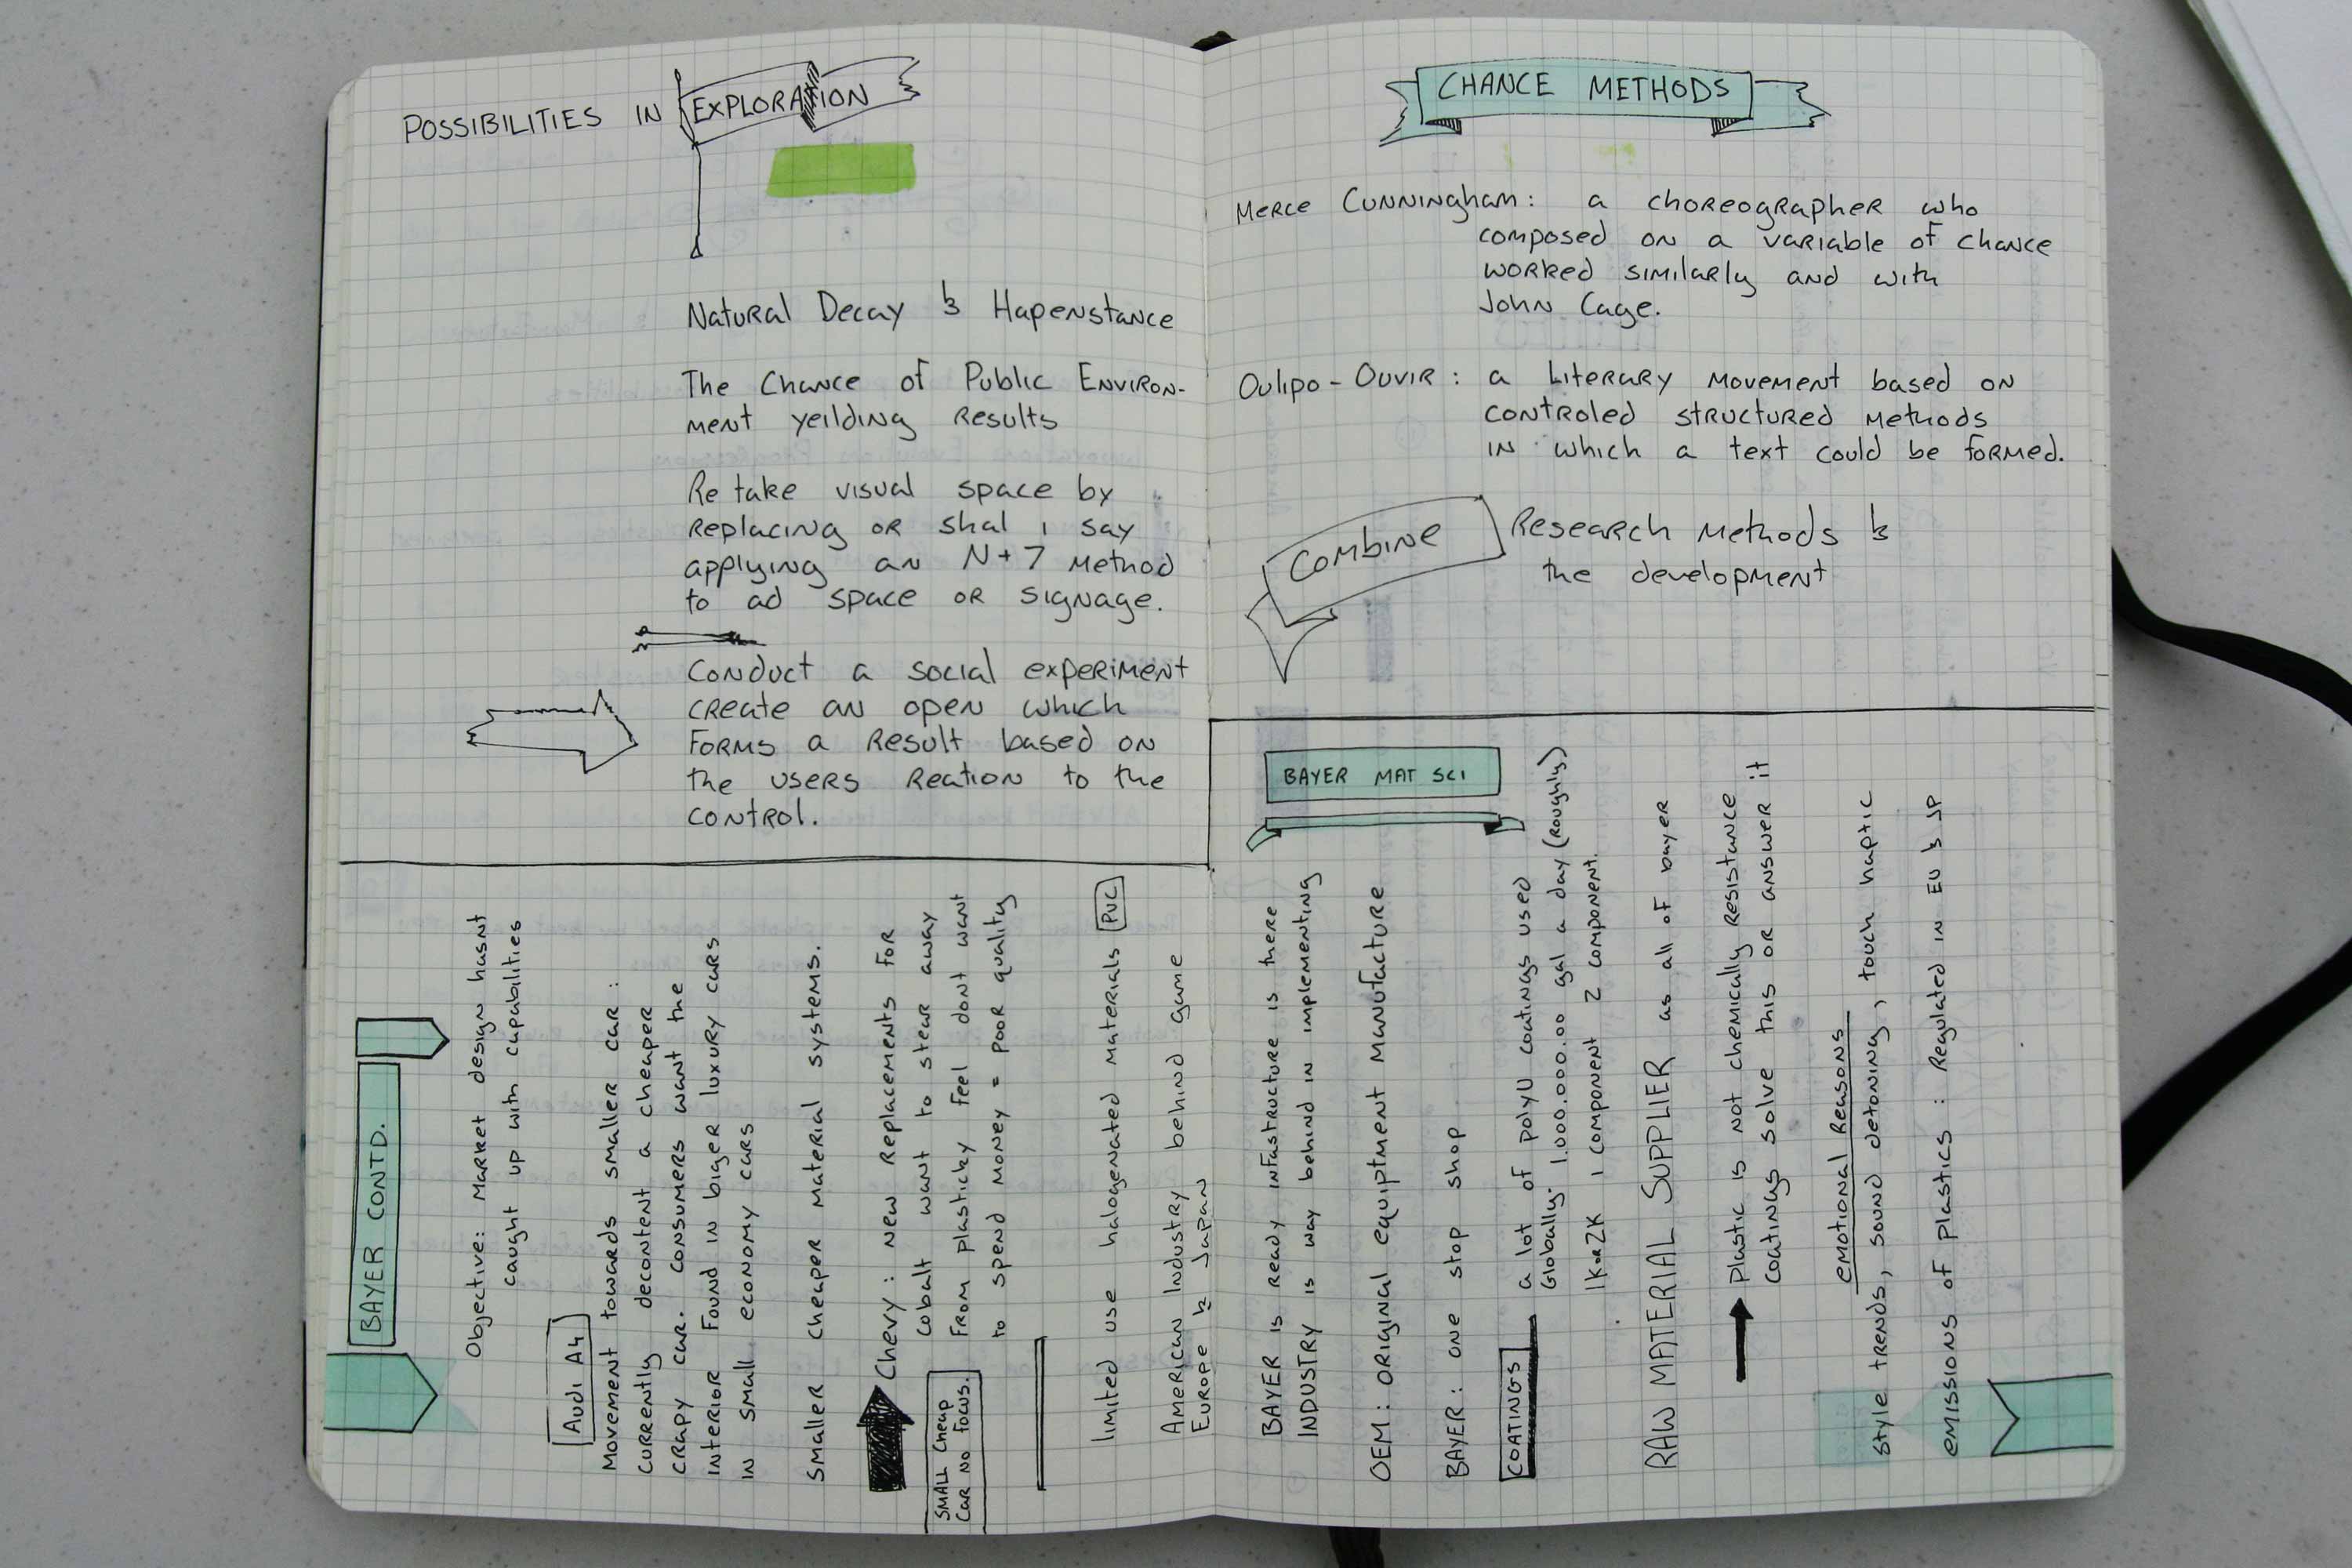 POSSIBILITIES IN EXPLORATION
Natural Decay & Hapenstance
The Chance of Public Environ-
ment yeilding Results
Re take visual space by
replacing or shal i say
applying an N+7 method
to ad space or signage.
Conduct a social experiment
create an open which
forms a result based on
the users reation to the
control.
BAYER CONTD.
Objective: Market design hasnt
caught up with capabilities
Audi A4
Movement towards smaller car:
currently decontent a cheaper
crapy car. consumers want the
interior found in biger luxury cars
in small economy cars
smaller cheaper material systems.
Chevy: new replacements for
cobalt want to stear away
from plasticky feel dont want
to spend money = poor quality
SMALL cheap
car no focus.
limited use halogenated materials PVC
American Industry behind game
Europe & Japan
CHANCE METHODS
Merce Cunningham: a choreographer who
composed on a variable of chance
worked similarly and with
John Cage.
Oulipo-Ouvir: a literary movement based on
controled structured methods
in which a text could be formed.
Combine Research methods &
the development
BAYER MAT SCI
BAYER is ready infastructure is there
INDUSTRY is way behind in implementing
OEM: original equiptment manufacture
BAYER: one stop shop
COATINGS a lot of polyU coatings used
Globally. 1.000.000.00 gal a day (roughly)
1K or 2K 1 component 2 component.
RAW MATERIAL SUPPLIER as all of bayer
Plastic is not chemically resistance
coatings solve this or answer it
emotional Reasons
style trends, sound detoning, touch haptic
emissions of plastics: Regulated in EU & JP